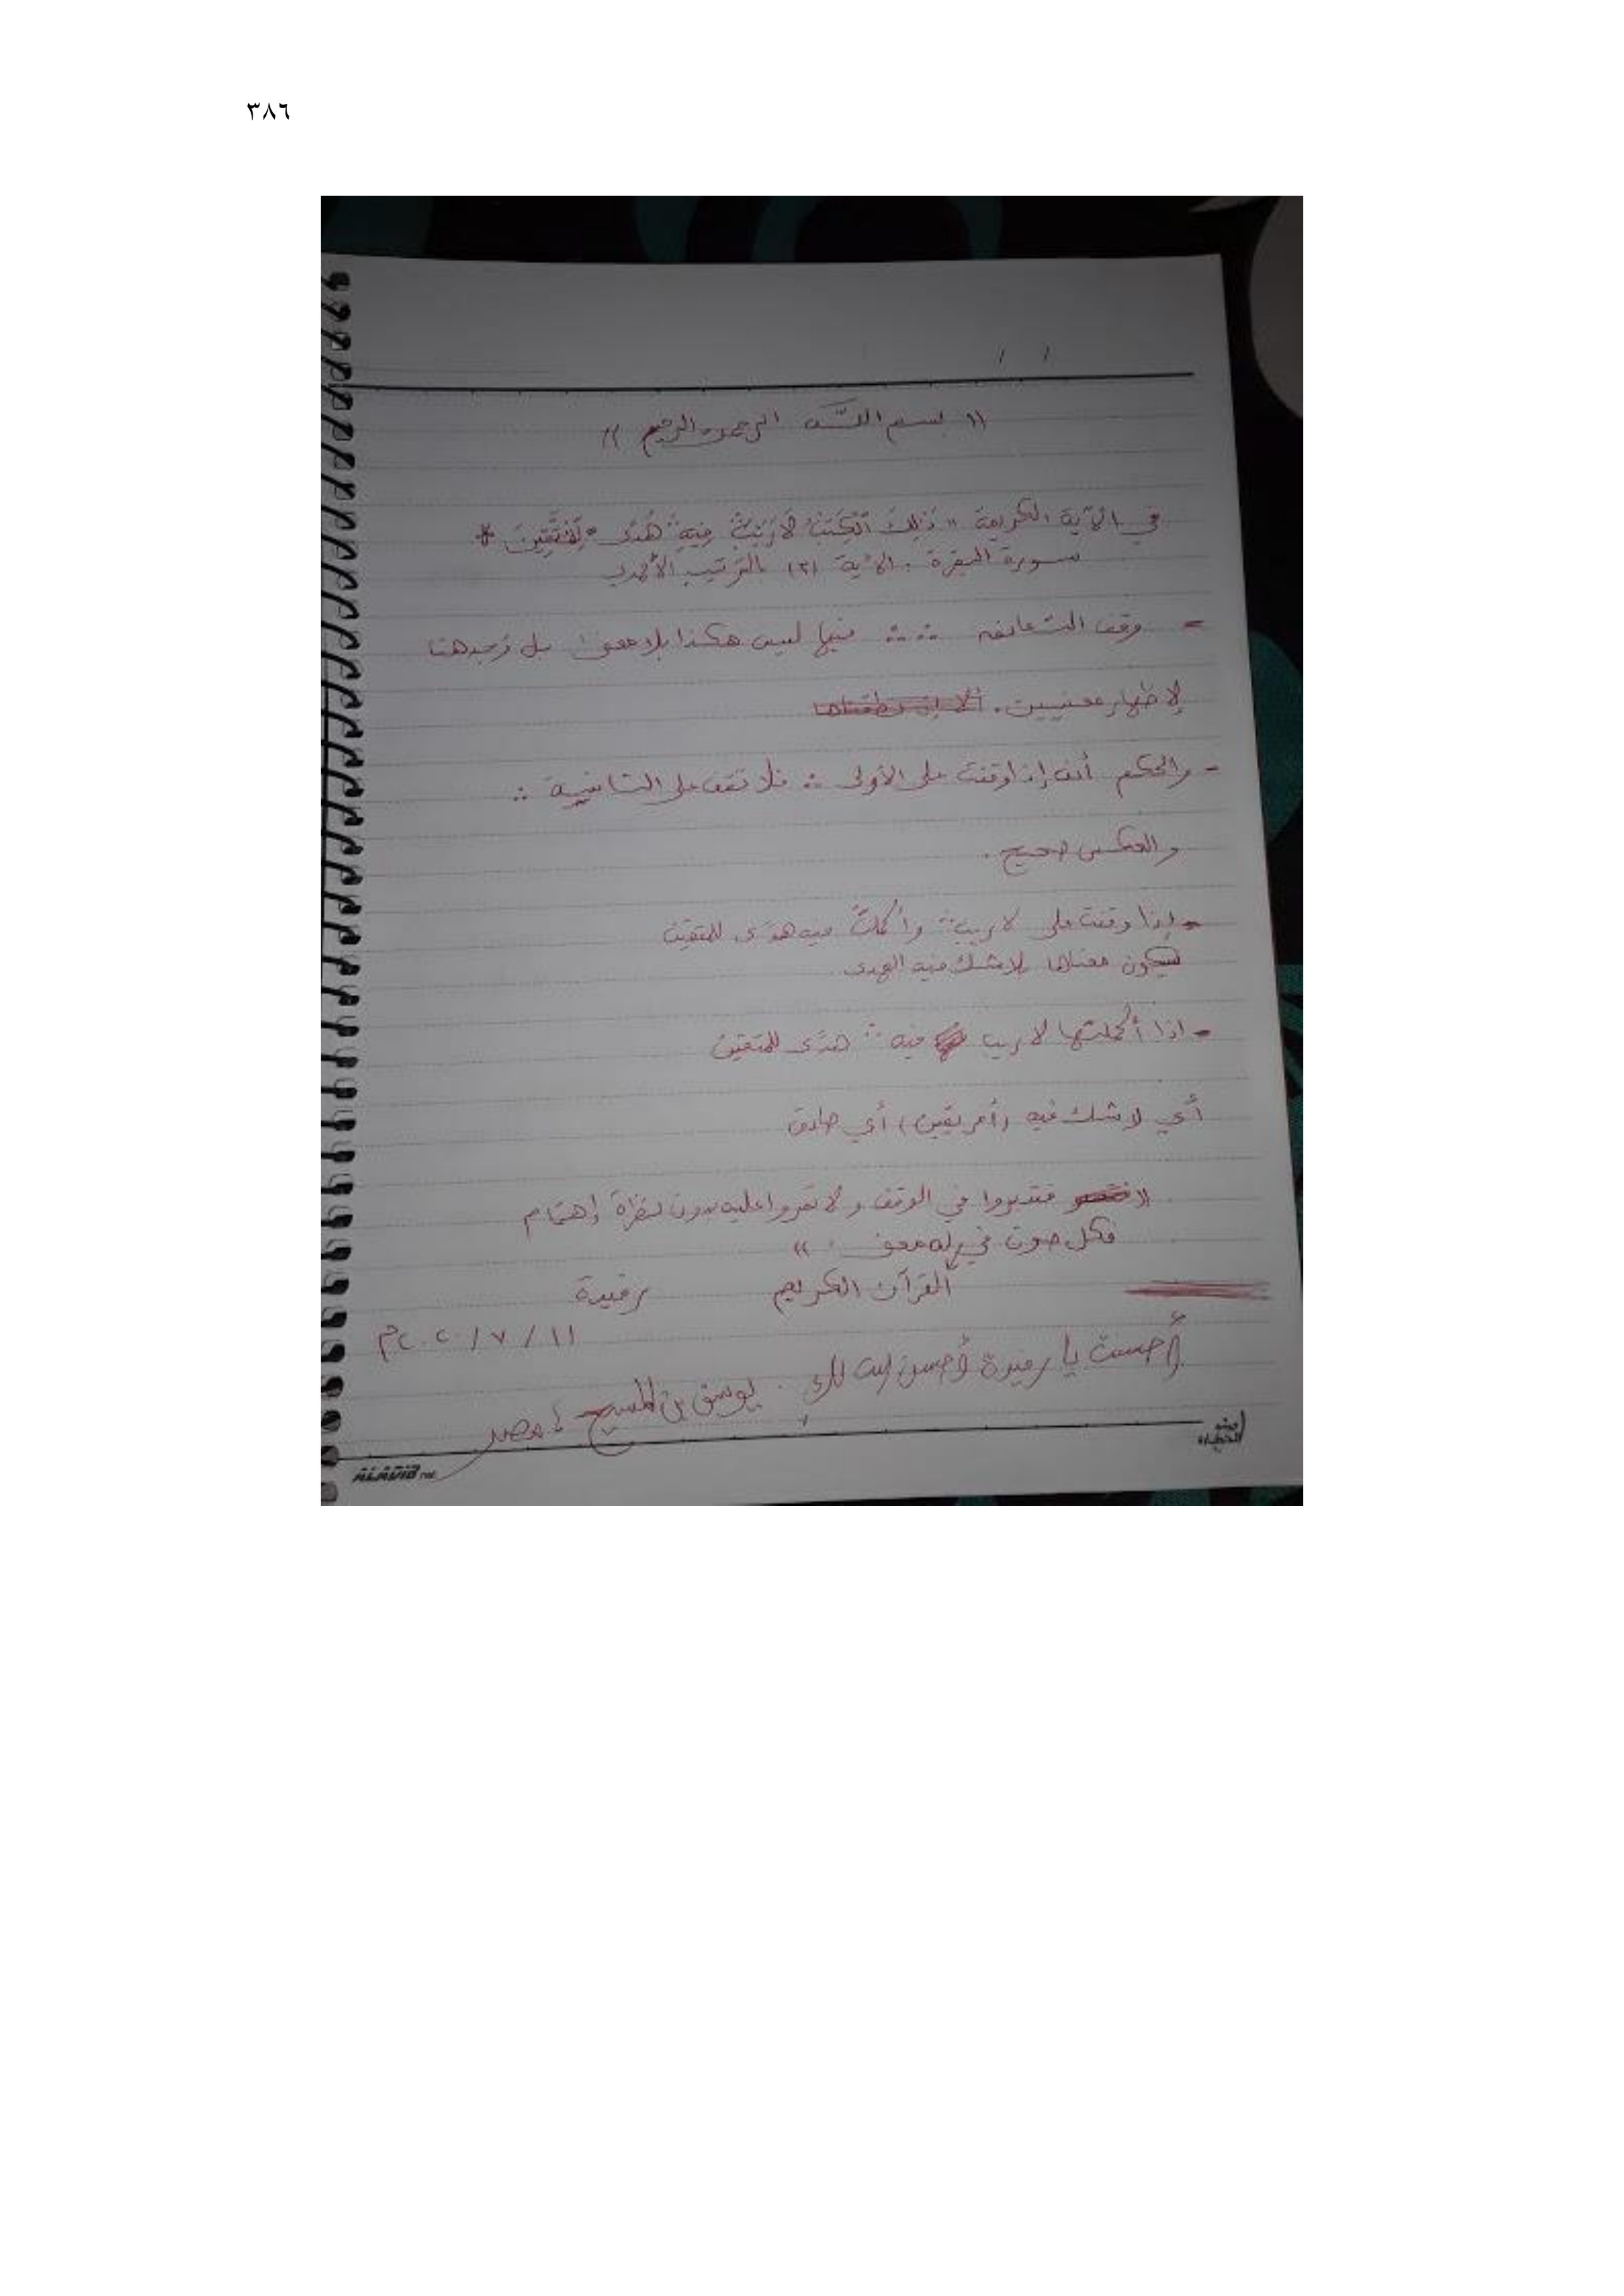 ٣٨٦
(( بسم الله الرحمن الرحيم ))
في الآية الكريمة " ذَٰلِكَ الْكِتَٰبُ لَا رَيْبَ ۛ فِيهِ ۛ هُدًى لِّلْمُتَّقِينَ *
سورة البقرة . الآية (٣) بالترتيب الأحمدي
- وقف التعانق ∴ ∴ فيها ليس هكذا بلا معنى بل وُجد هنا
لإظهار معنيين .
- والحكم أنك إذا وقفت على الأولى ∴ فلا تقف على الثانية ∴
والعكس صحيح .
- إذا وقفت على لا ريب ∴ وأكملت فيه هدًى للمتقين
سيكون معناها لا شك فيه الهدى
- اذا أكملتها لا ريب فيه ∴ هدًى للمتقين
أي لا شك فيه (أمر يقين) أي صادق
(( فتدبروا في الوقف ولا تمروا عليه بدون نظرة إهتمام
فكل صوت في له معنى . ))
القرآن الكريم رفيدة
١١ / ٧ / ٢٠٢٠م
أحسنت يا رفيدة أحسن الله لك . يوسف بن المسيح ، مصر
ALADIB